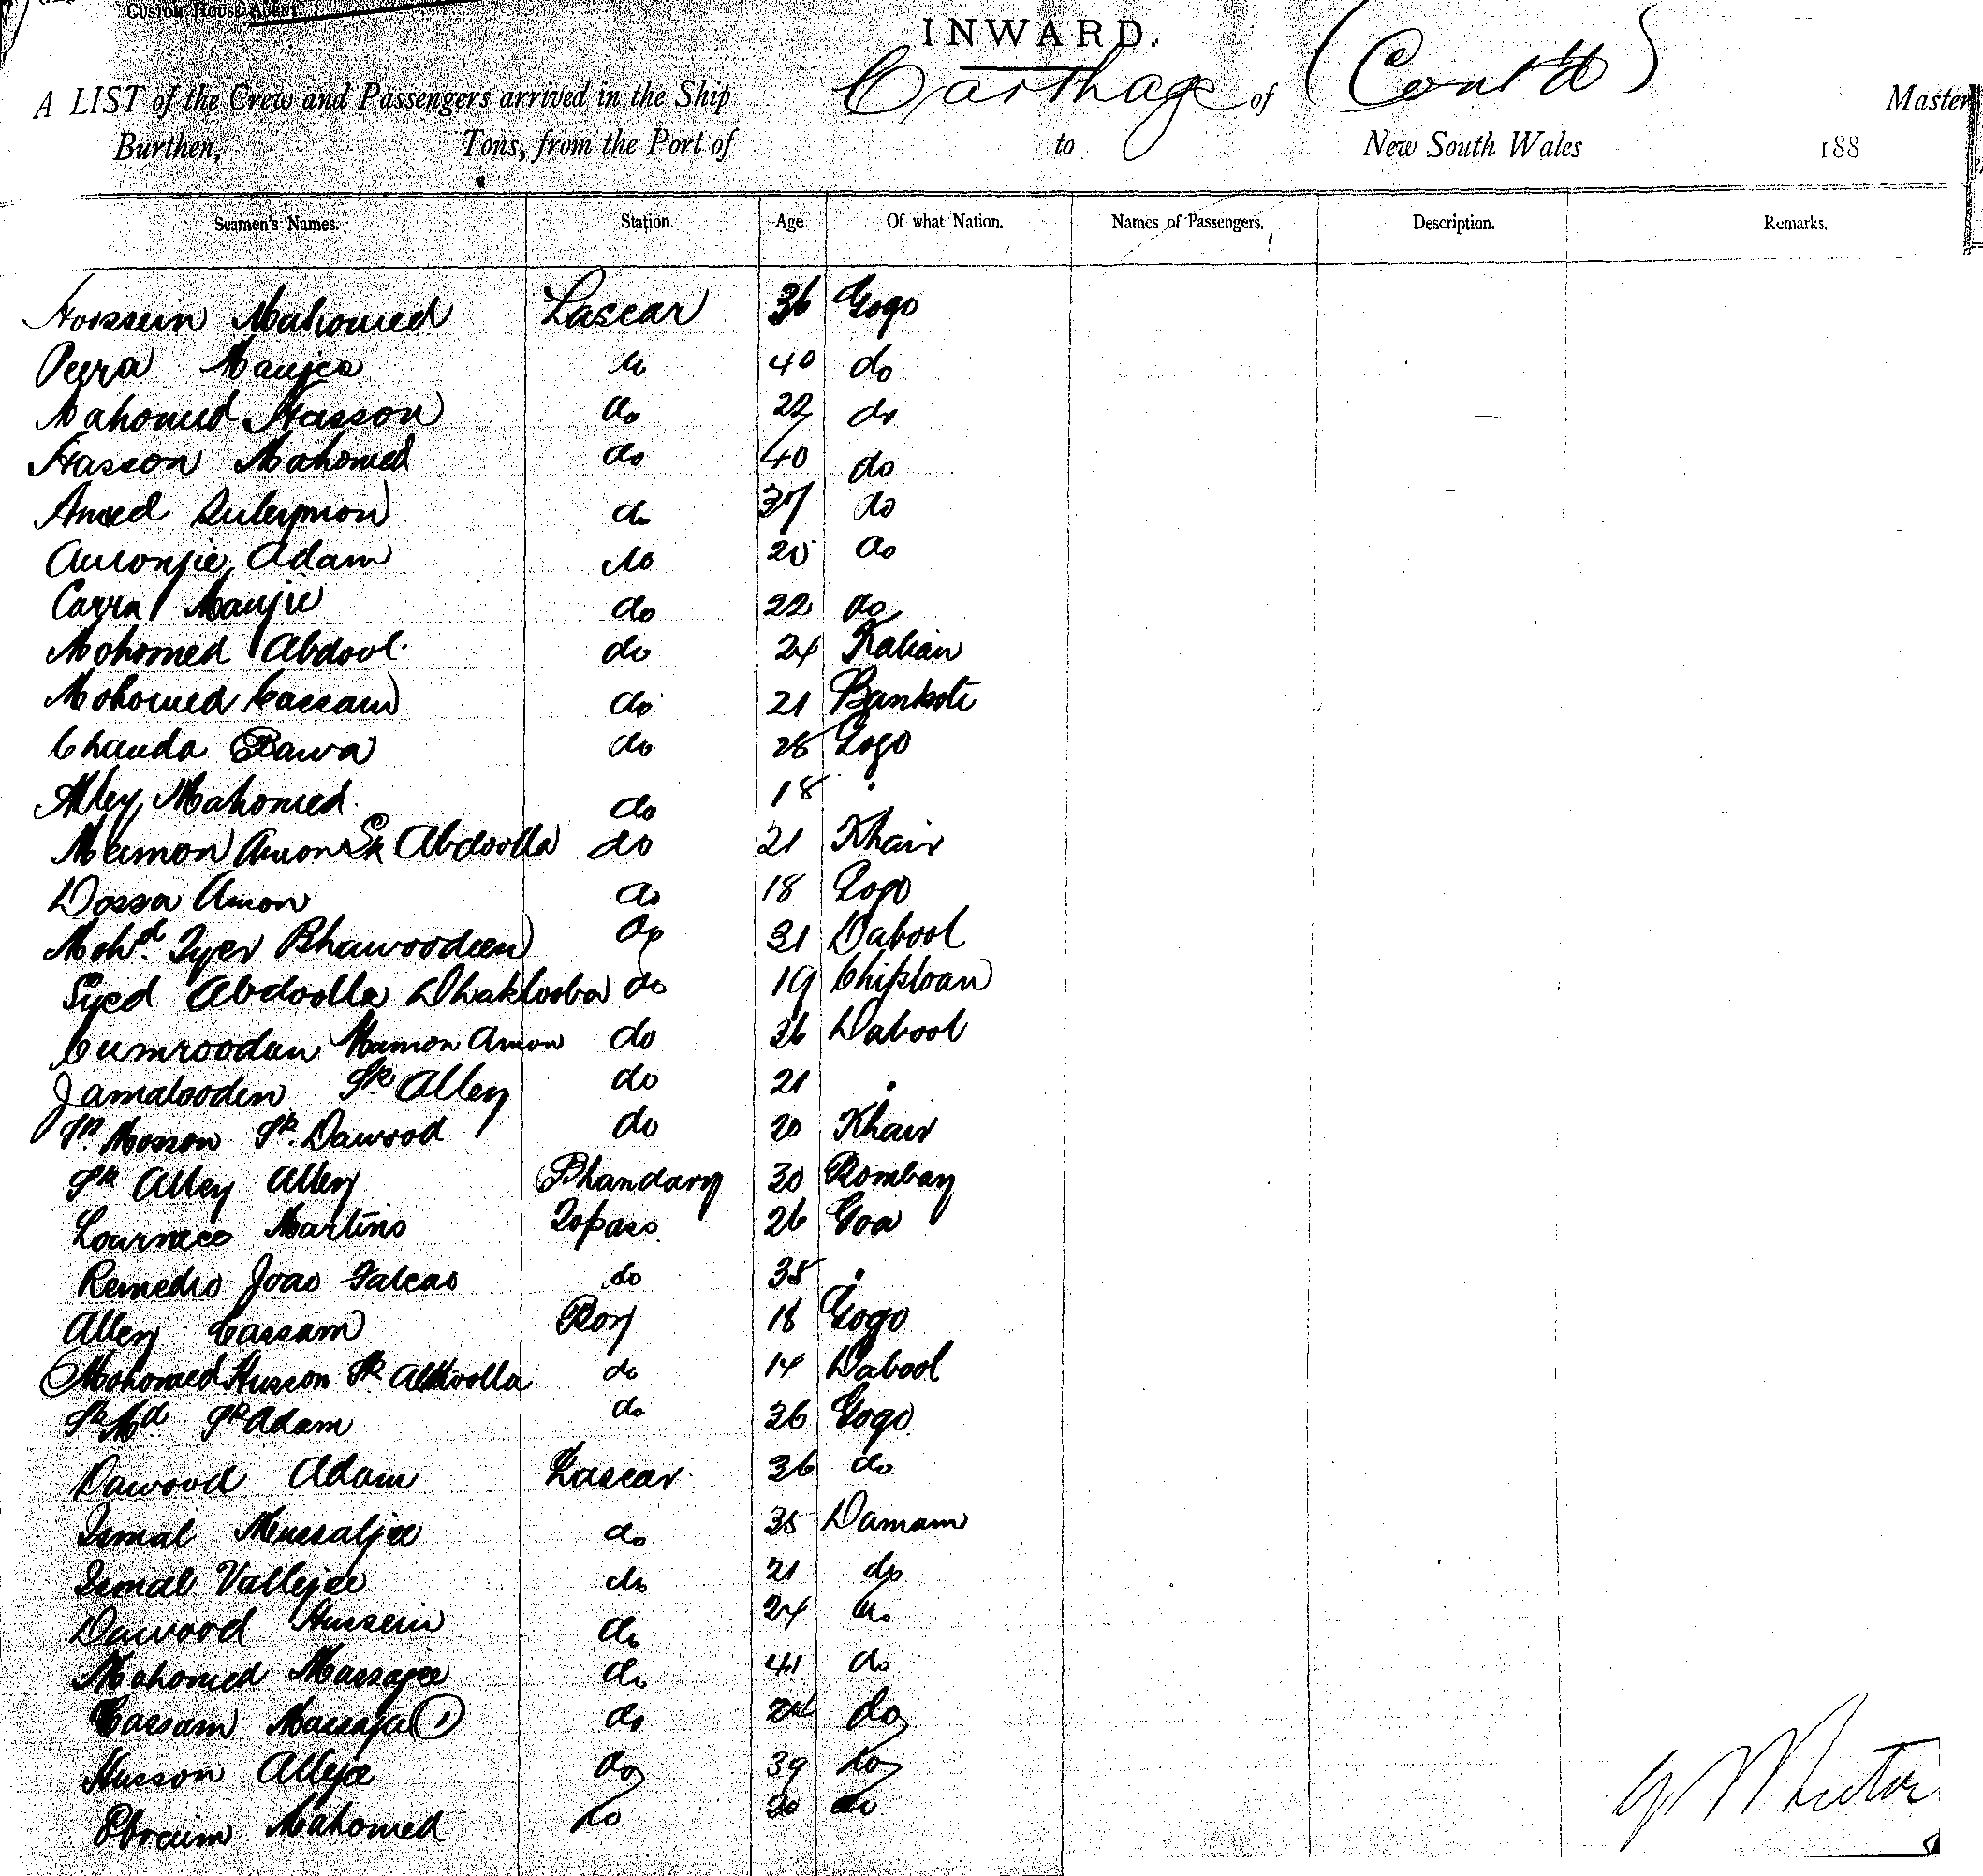 CUSTOM HOUSE AGENT
INWARD.
A LIST of the Crew and Passengers arrived in the Ship Carthage of (Cont'd) Master
Burthen, Tons, from the Port of to New South Wales 188
Seamen's Names. Station. Age Of what Nation. Names of Passengers. Description. Remarks.
Hossein Mahomed Lascar 36 Gogo
Peera Manjee do 40 do
Mahomed Hasson do 22 do
Hasson Mahomed do 40 do
Amed Suleymon do 37 do
Adam do 20 do
Carra Manjie do 22 do
Mohomed Abdool do 24 Kalian
Mohomed Cassam do 21 Bankote
Chanda Bawa do 28 Gogo
Alley Mahomed do 18 "
Mamon Amon Sk Abdoolla do 21 Khair
Dossa Amon do 18 Gogo
Mohd. Bhawoodeen do 31 Dabool
Syed Abdoolla Dhaklooba do 19 Chiploan
Cumroodun Mamon Amon do 36 Dabool
Jamalooden Sk Alley do 21 "
Sk Hosson Sk. Dawood do 20 Khair
Sk Alley Alley Bhandary 30 Bombay
Martins Topass 26 Goa
Remedio Joao Falcao do 38 "
Alley Cassam Boy 18 Gogo
Mohomed Husson Sk Abdoolla do 14 Dabool
Sk Md Sk Adam do 26 Gogo
Dawood Adam Lascar 36 do
Ismal Mussaljee do 35 Damam
Ismal Vallejee do 21 do
Dawood Hussein do 24 do
Mohomed Massajee do 41 do
Cassam Massaja (1) do do
Husson Alleje do 39 do
Ebrcum Mahomed do 20 do